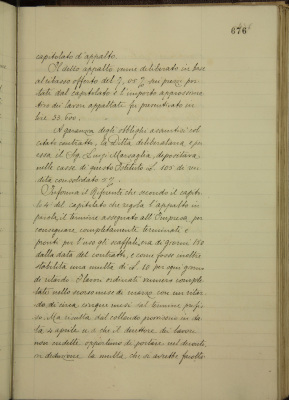 676
capitolato d'appalto.
Il detto appalto venne deliberato in base
al ribasso offerto del 7,05 % sui prezzi por-
tati dal capitolato e l'importo approssima-
tivo dei lavori appaltati fu preventivato in
lire 33.600.
A garanzia degli obblighi assuntisi col
citato contratto, la Ditta deliberataria, e per
essa il Sig. Luigi Marsaglia, depositava,
nelle casse di questo Istituto L. 105 di ren-
dita consolidato 5 %.
Informa il Riferente che secondo il capito-
lo 4° del capitolato che regola l'appalto in
parola, il termine assegnato all'Impresa per
consegnare completamente terminati e
pronti per l'uso gli scaffali, era di giorni 150
dalla data del contratto, e come fosse inoltre
stabilita una multa di L. 20 per ogni giorno
di ritardo. I lavori ordinati vennero comple-
tati nello scorso mese di marzo con un ritar-
do di circa cinque mesi sul termine prefis-
so. Ma risulta dal collaudo pronunciato in da-
ta 4 aprile u.s. che il direttore dei lavori
non credette opportuno di portare nel
di deduzione la multa che si sarebbe